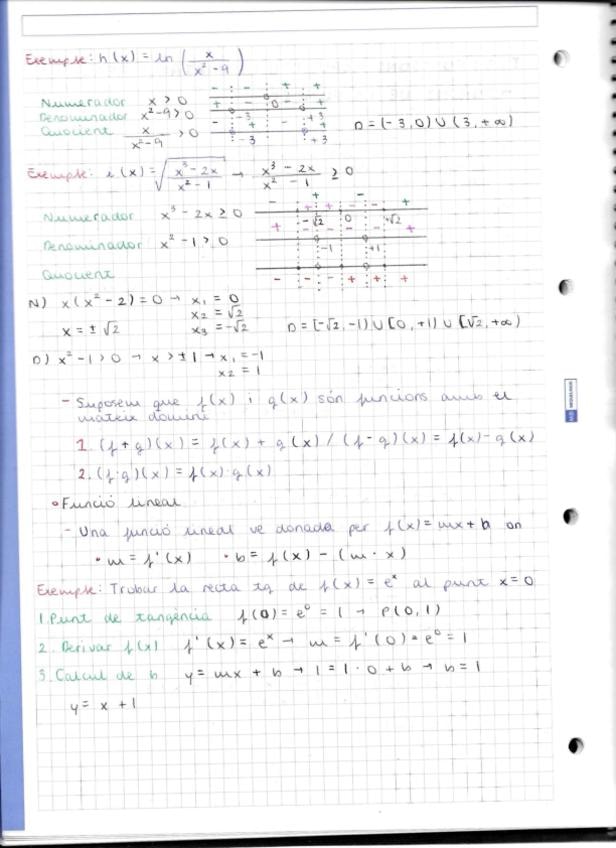 Exemple: h(x) = ln (x / x² - 9)
Numerador x > 0
Denominador x² - 9 > 0
Quocient x / x² - 9 > 0
D = (-3, 0) ∪ (3, +∞)
Exemple: i(x) = √(x³ - 2x / x² - 1) → x³ - 2x / x² - 1 ≥ 0
Numerador x³ - 2x ≥ 0
Denominador x² - 1 > 0
Quocient
N) x(x² - 2) = 0 → x₁ = 0
x₂ = √2
x = ± √2 x₃ = -√2
D = [-√2, -1) ∪ [0, +1) ∪ [√2, +∞)
D) x² - 1 > 0 → x > ± 1 → x₁ = -1
x₂ = 1
- Suposem que f(x) i g(x) són funcions amb el
mateix domini
1. (f + g)(x) = f(x) + g(x) / (f - g)(x) = f(x) - g(x)
2. (f · g)(x) = f(x) · g(x)
• Funció lineal
- Una funció lineal ve donada per f(x) = mx + b on
• m = f'(x) • b = f(x) - (m · x)
Exemple: Trobar la recta tg de f(x) = eˣ al punt x = 0
1. Punt de tangència f(0) = e⁰ = 1 → P(0, 1)
2. Derivar f(x) f'(x) = eˣ → m = f'(0) = e⁰ = 1
3. Càlcul de b y = mx + b → 1 = 1 · 0 + b → b = 1
y = x + 1